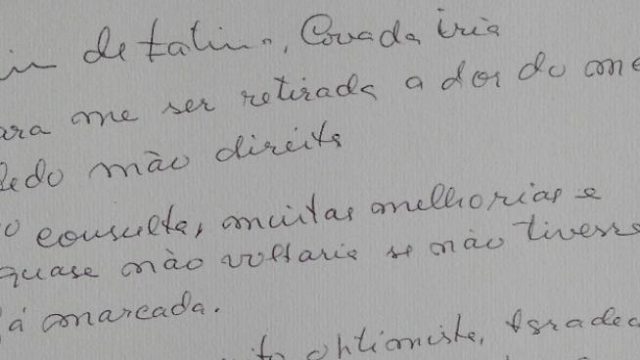 de Fátima, Cova da Iria
para me ser retirada a dor do me
dedo mão direita
consulta, muitas melhorias e
quase não voltaria se não tivesse
já marcada.
optimista, Agradec